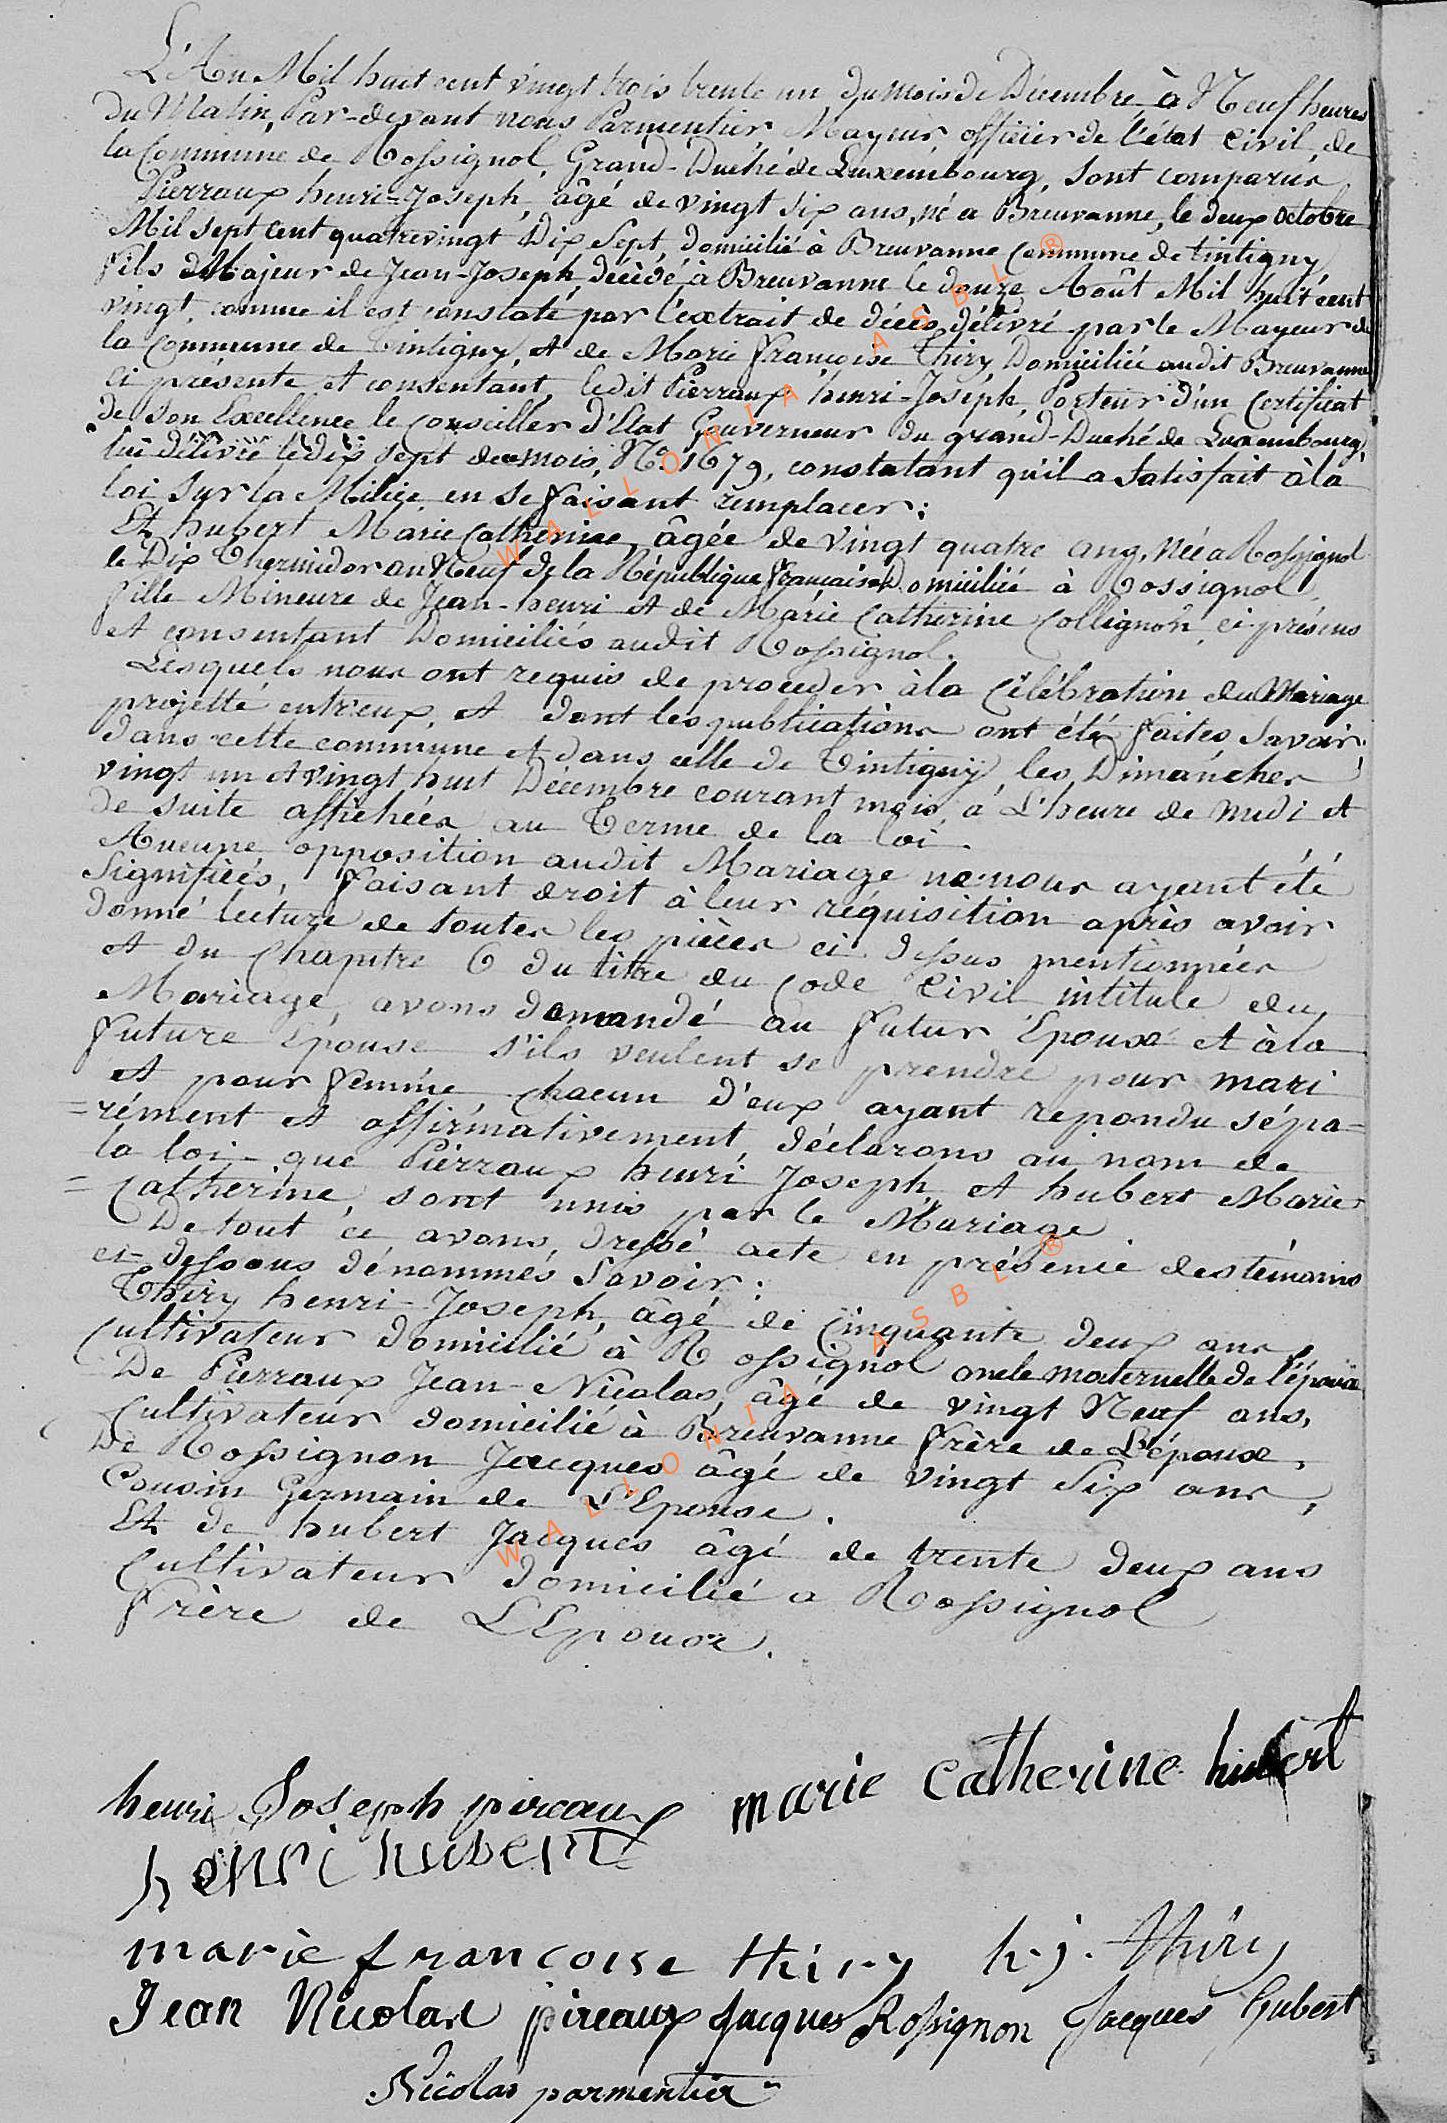 L'An Mil huit cent vingt trois trente un du mois de Décembre, à Neuf heures
du Matin, Par-devant nous Parmentier, Mayeur, officier de l'état Civil, de
la Commune de Rossignol, Grand-Duché de Luxembourg, sont comparus
Pierraux henri-Joseph, âgé de vingt six ans, né a Breuvanne, le deux octobre
Mil sept cent quatrevingt Dix Sept, domicilié à Breuvanne Commune de tintigny,
fils Majeur de Jean-Joseph, décédé à Breuvanne le douze Août Mil huit cent
vingt, comme il est constaté par l'extrait de décès délivré par le Mayeur de
la Commune de Tintigny, et de Marie françoise Thiry Domiciliée audit Breuvanne
ci présente et consentant, ledit Pierraux henri-Joseph, Porteur d'un Certificat
de son Excellence le Conseiller d'Etat Gouverneur du grand-Duché de Luxembourg,
lui délivré le dix sept de mois, N° 1679, constatant qu'il a satisfait à la
loi sur la Milice en se faisant remplacer;
Et hubert Marie Catherine, âgée de vingt quatre ans, née a Rossignol
le Dix Thermidor an Neuf de la République francaise Domiciliée à Rossignol,
fille Mineure de Jean-henri et de Marie Catherine Collignon, ci présens
et consentant Domiciliés audit Rossignol.
Lesquels nous ont requis de proceder à la Célébration du Mariage
projetté entr'eux, et dont les publications ont été faites, Savoir:
dans cette commune et dans celle de Tintigny les Dimanches
vingt un et vingt huit Décembre courant mois, à L'heure de midi et
de suite affichées au Terme de la loi.
Aucune opposition audit Mariage ne nous ayant été
Signifiées, faisant droit à leur réquisition après avoir
donné lecture de toutes les pièces ci dessus mentionnées
et du Chapitre 6 du titre du Code Civil intitulé du
Mariage, avons demandé au futur Epoux et à la
future Epouse s'ils veulent se prendre pour mari
et pour femme, chacun d'eux ayant repondu sépa-
=rément et affirmativement, déclarons au nom de
la loi que Pierraux henri Joseph, et hubert Marie
=Catherine, sont unis par le Mariage
De tout ce avons dressé acte en présence des témoins
ci-dessous dénommés Savoir:
Thiry henri-Joseph, âgé de Cinquante deux ans,
Cultivateur domicilié à Rossignol oncle maternelle de l'époux
De Pierraux Jean-Nicolas, âgé de vingt Neuf ans,
Cultivateur domicilié à Breuvanne frère de L'époux,
De Rossignon Jacques âgé de vingt Six ans,
Cousin Germain de L'Epouse.
Et de hubert Jacques âgé de trente deux ans
Cultivateur domicilié a Rossignol
frère de L'Epouse.
henri Joseph pireaux marie catherine hubert
henri hubert
marie francoise thiry h.j. Thiry
Jean Nicolas pireaux Jacques Rossignon Jacques hubert
Nicolas parmentier
WALLONIA ASBL ®
WALLONIA ASBL ®